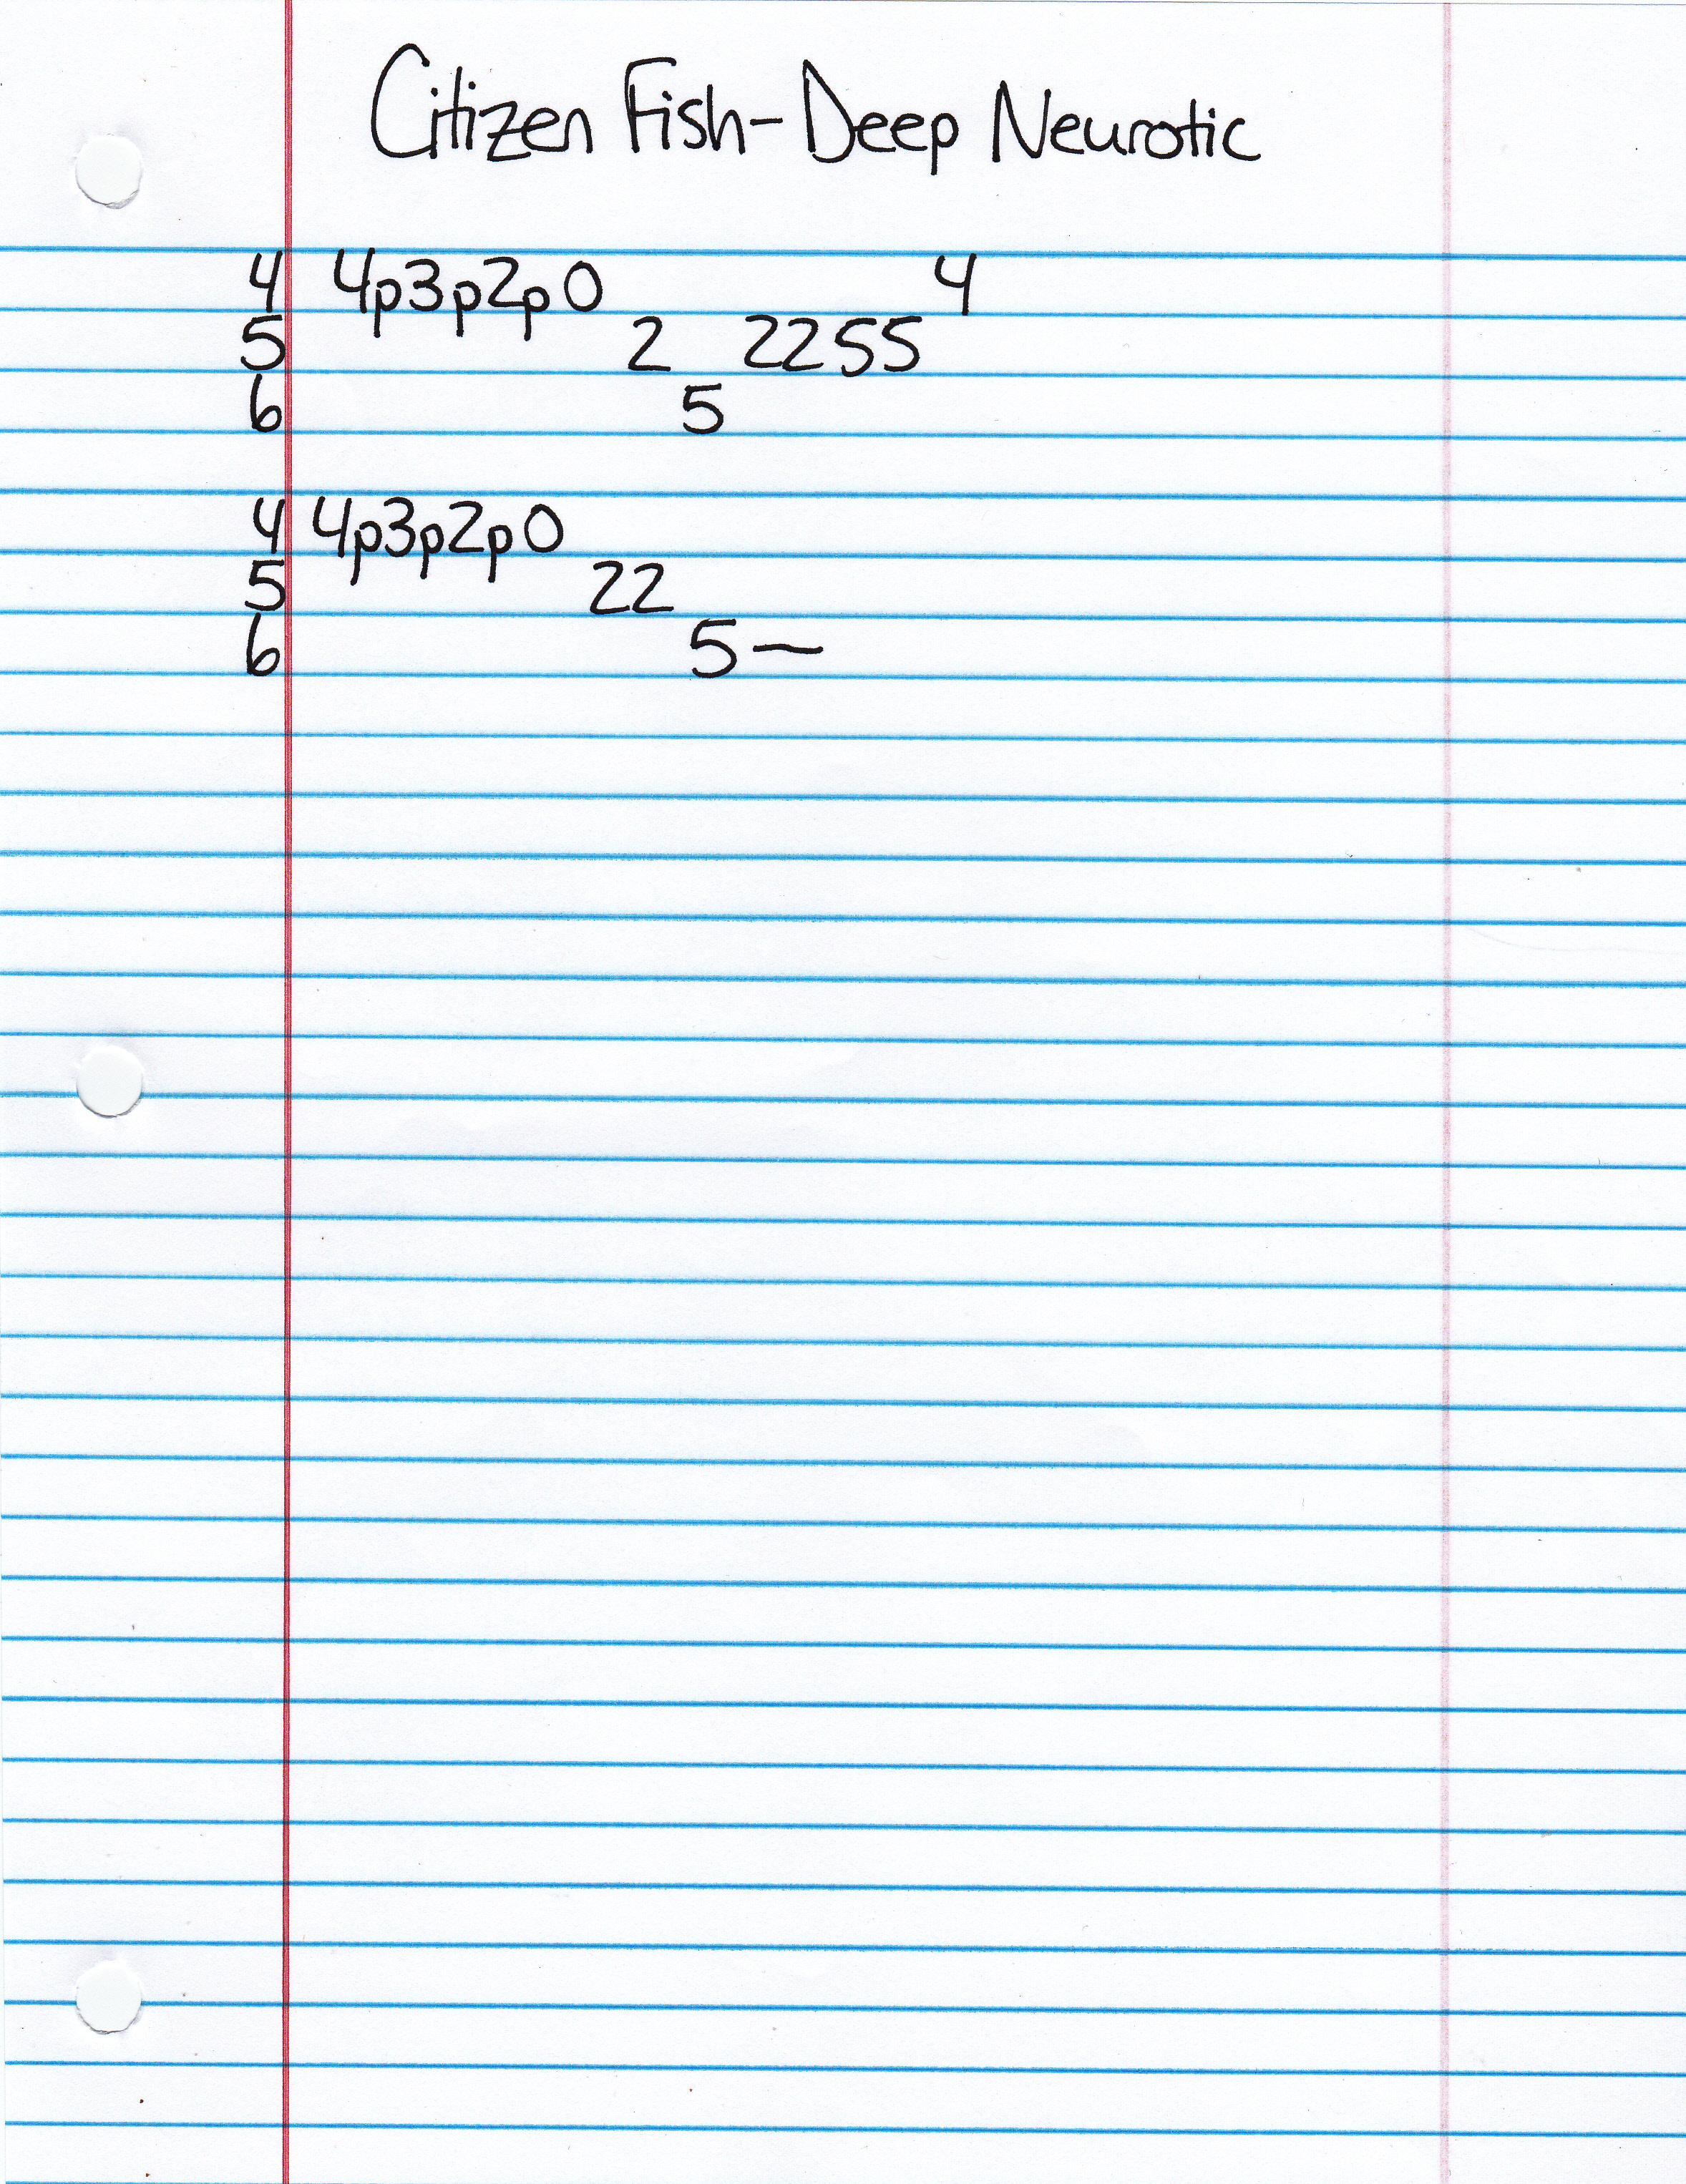 Citizen Fish-Deep Neurotic
4 4p3p2p0 4
5 2 2255
6 5
4 4p3p2p0
5 22
6 5—